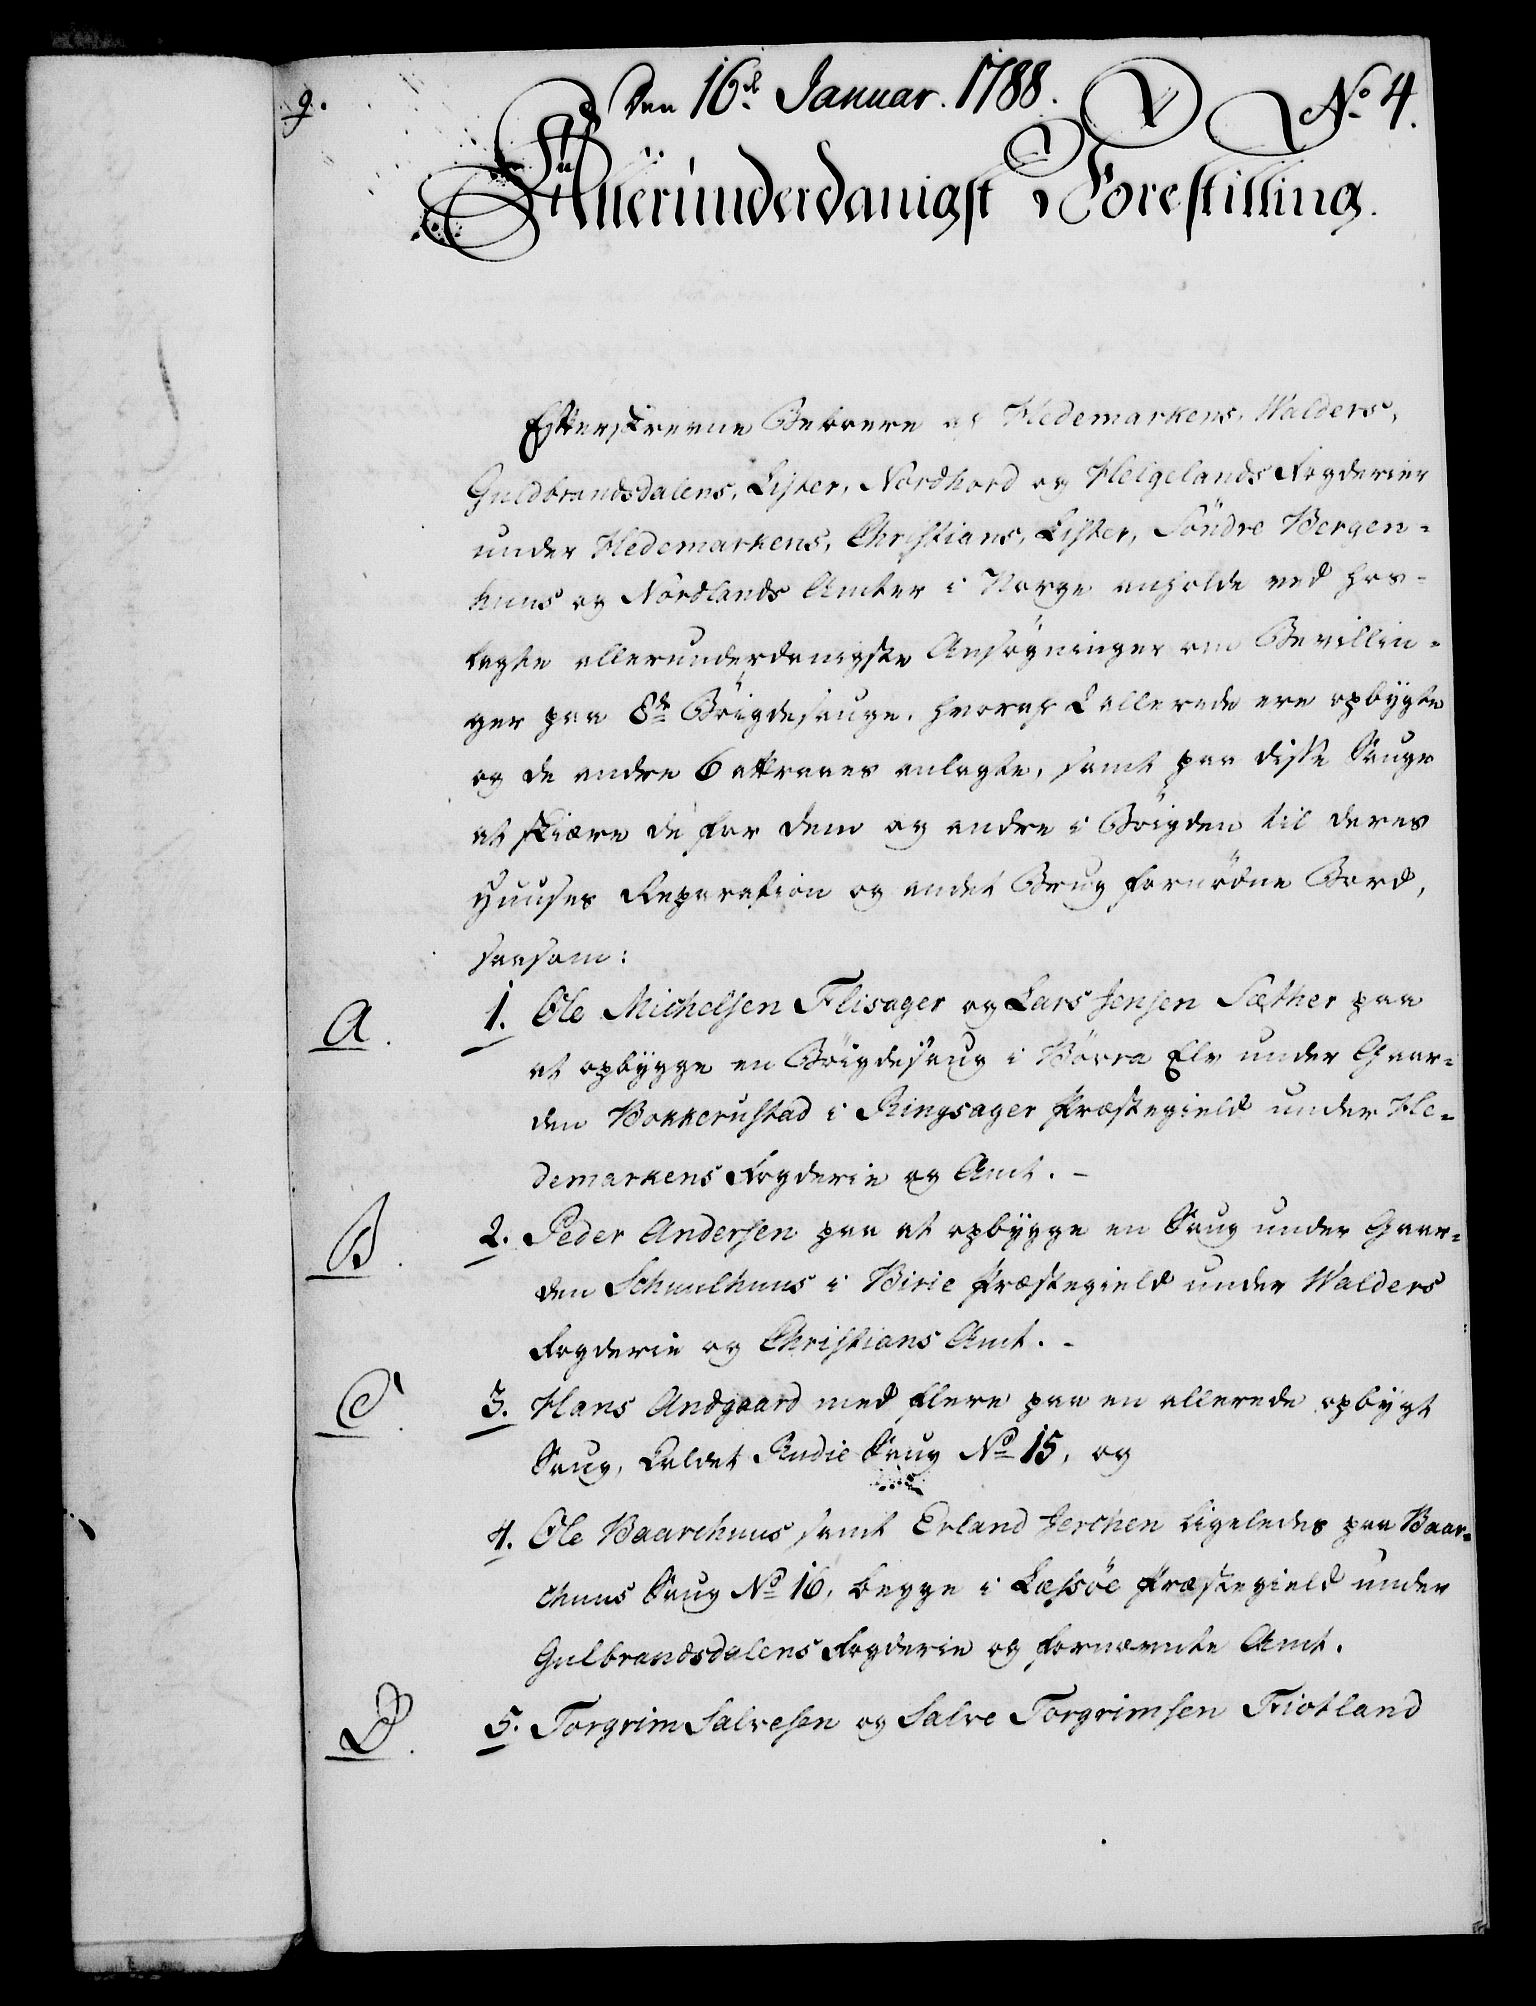 9.
Den 16de Januar. 1788.
No 4.
Allerunderdanigst Forestilling.
Efterskrevne Beboere af Hedemarkens, Walders,
Guldbrandsdalens, Lister, Nordhord og Helgelands Fogderier
under Hedemarkens, Christians, Lister, Söndre Bergen-
huus og Nordlands Amter i Norge anholde ved hos-
lagte allerunderdanigste Ansøgninger om Bevillin-
ger paa 8te Böigdesauge, hvoraf 2 allerede ere opbygte
og de andre 6 attraaes anlagte, samt paa disse Sauge
at skiære de for dem og andre i Böigden til deres
Huuses Reparation og andet Brug fornödne Bord,
saasom:
A.
1. Ole Michelsen Flisager og Lars Jensen Sæther paa
at opbygge en Böigdesaug i Börra Elv under Gaar-
den Bokkerustad i Ringsager Præstegield under He-
demarkens Fogderie og Amt. -
B.
2. Peder Andersen paa at opbygge en Saug under Gaar-
den Schuulhuus i Birie Præstegield under Walders
Fogderie og Christians Amt. -
C.
3. Hans Andgaard med flere paa en allerede opbygt
Saug, kaldet Rudie Saug No 15, og
4. Ole Baarehuus samt Erland Jerchen ligeledes paa Baar-
ehuus Saug No 16, begge i Læssöe Præstegield under
Gulbrandsdalens Fogderie og fornævnte Amt.
D.
5. Torgrim Salvesen og Salve Torgrimsen Fiotland